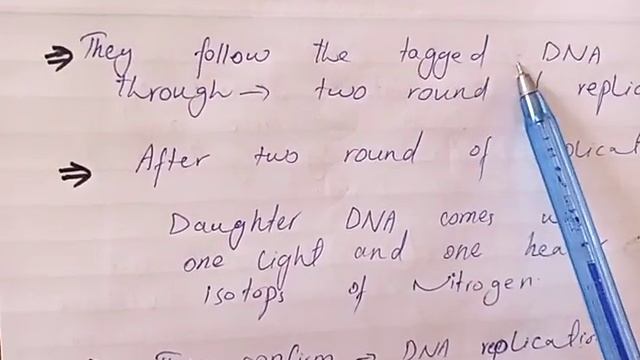 ⇒ They follow the tagged DNA
through → two round replic
⇒ After two round of
Daughter DNA comes
one light and one hea
isotops of Nitrogen.
confirm → DNA replication